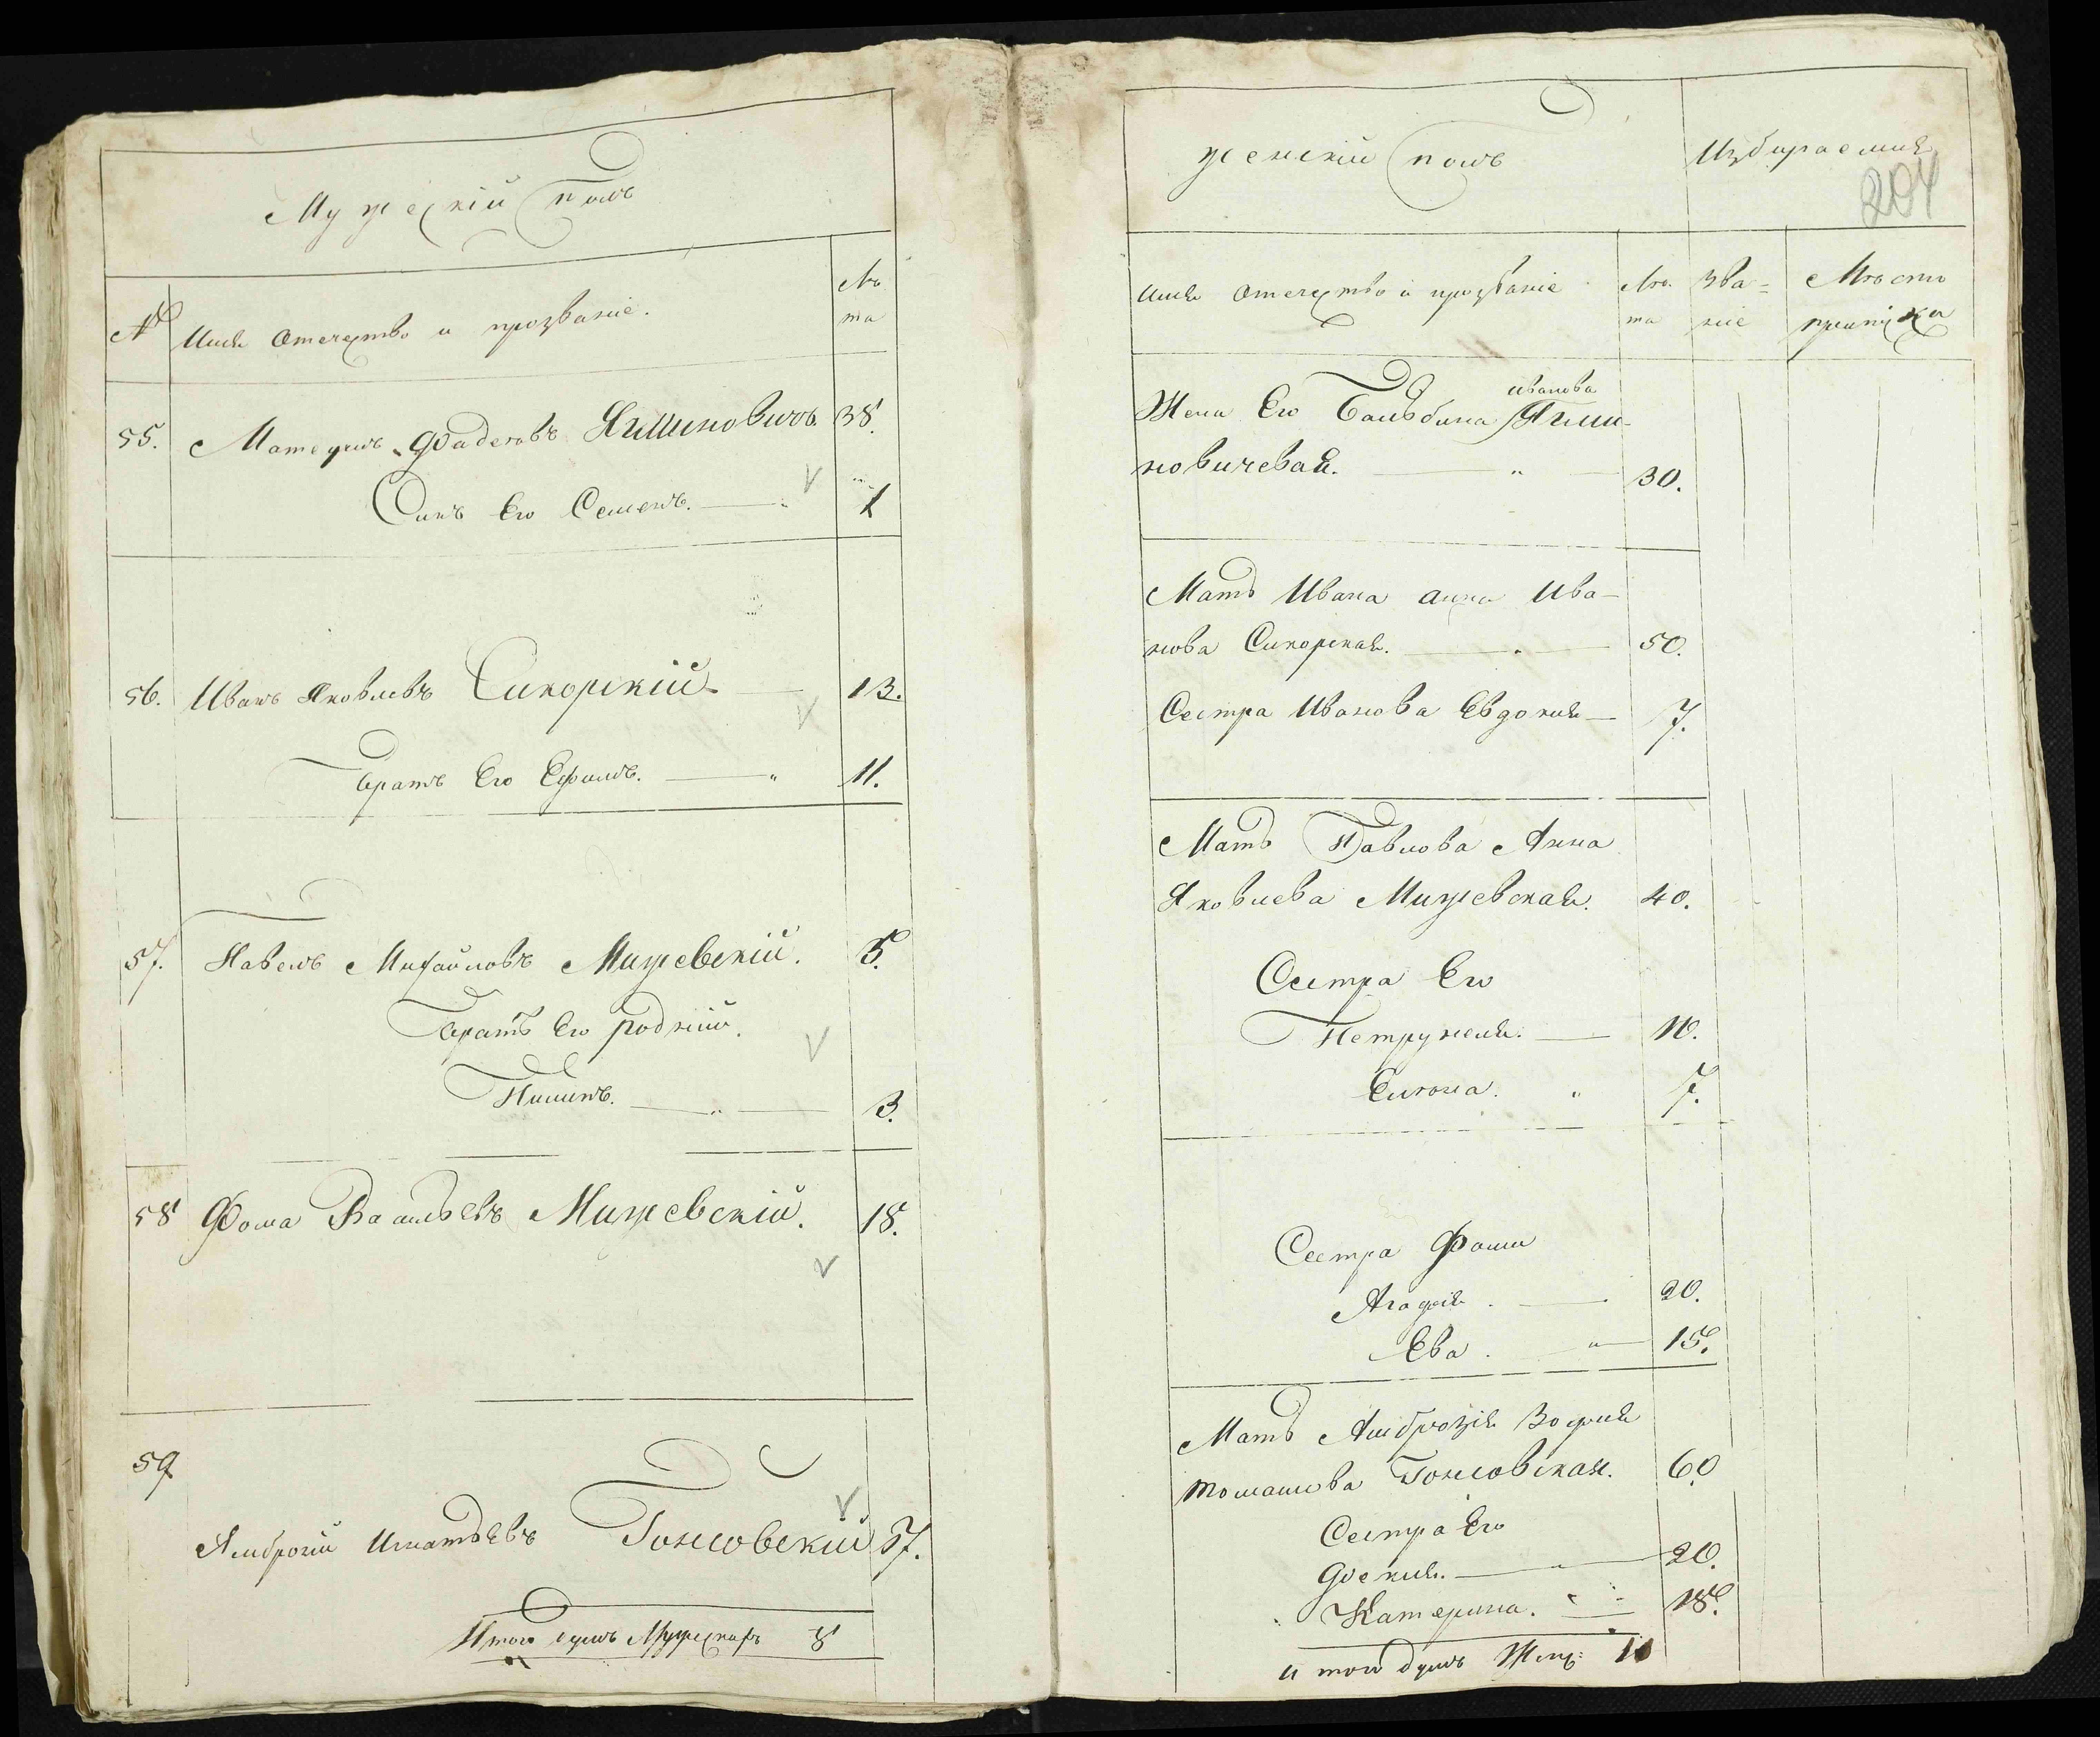 Мужескій полъ
№ Имя отечество и прозваніе. Лѣ
та
55. Матеушъ Фадеевъ Ягминовичъ. 38.
Сынъ Его Семенъ. 1
56. Иванъ Яковлевъ Сикорскій 13.
братъ Его Ефимъ. 11.
57. Павелъ Михайловъ Мижевскій. 5.
братъ Его родный.
Пилипъ. 3.
58 Фома Васильевъ Мижевскій. 18.
59
Амброзій Игнатьевъ Гонсовскій 37.
Итого душъ Мужескихъ 8
женскій полъ Избираемыя
204
Имя отечество и прозваніе Лѣ. Зва= Мѣсто
та ніе припіска
иванова
Жена Его Бальбина Ягми-
новичевая. 30.
Мать Ивана анна Ива-
нова Сикорская. 50.
Сестра Иванова Евдокия 7.
Мать Павлова Анна
Яковлева Мижевская. 40.
Сестра Его
Петрунеля. 10.
Елиона. 7.
Сестра Фомы
Агафія. 20.
Ева. 15.
Мать Амброзія Зофия
томашова Гонсовская. 60
Сестра Его
Фекия. 20.
Катерина. 18.
и того душъ Женс: 10